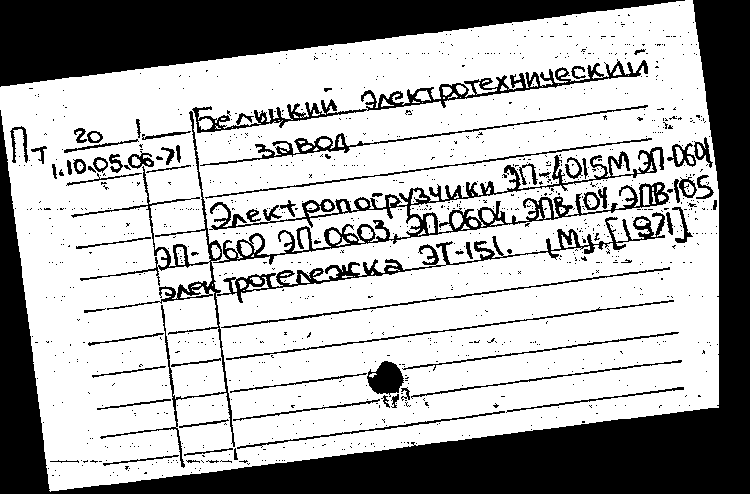 Пт 20 1
1.10.05.06-71
Бельцкий электротехнический
завод.
Электропогрузчики ЭП-4015М, ЭП-0601,
ЭП-0602, ЭП-0603, ЭП-0604, ЭПВ-104, ЭПВ-105,
электротележка ЭТ-151. [1971]